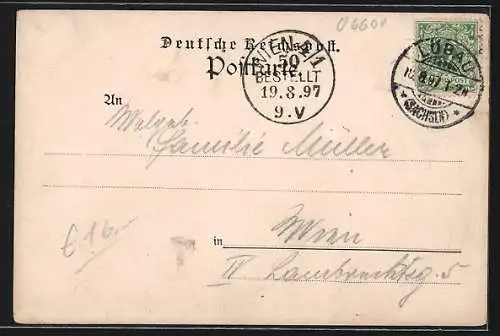 06600
Deutsche Reichspost.
Postkarte
WIEN 4/1
50
BESTELLT
19.8.97
9.V
LÖBAU
8.97
(SACHSEN)
An
Familie Müller
in Wien
IV Lambrechtsg. 5
€ 16.-